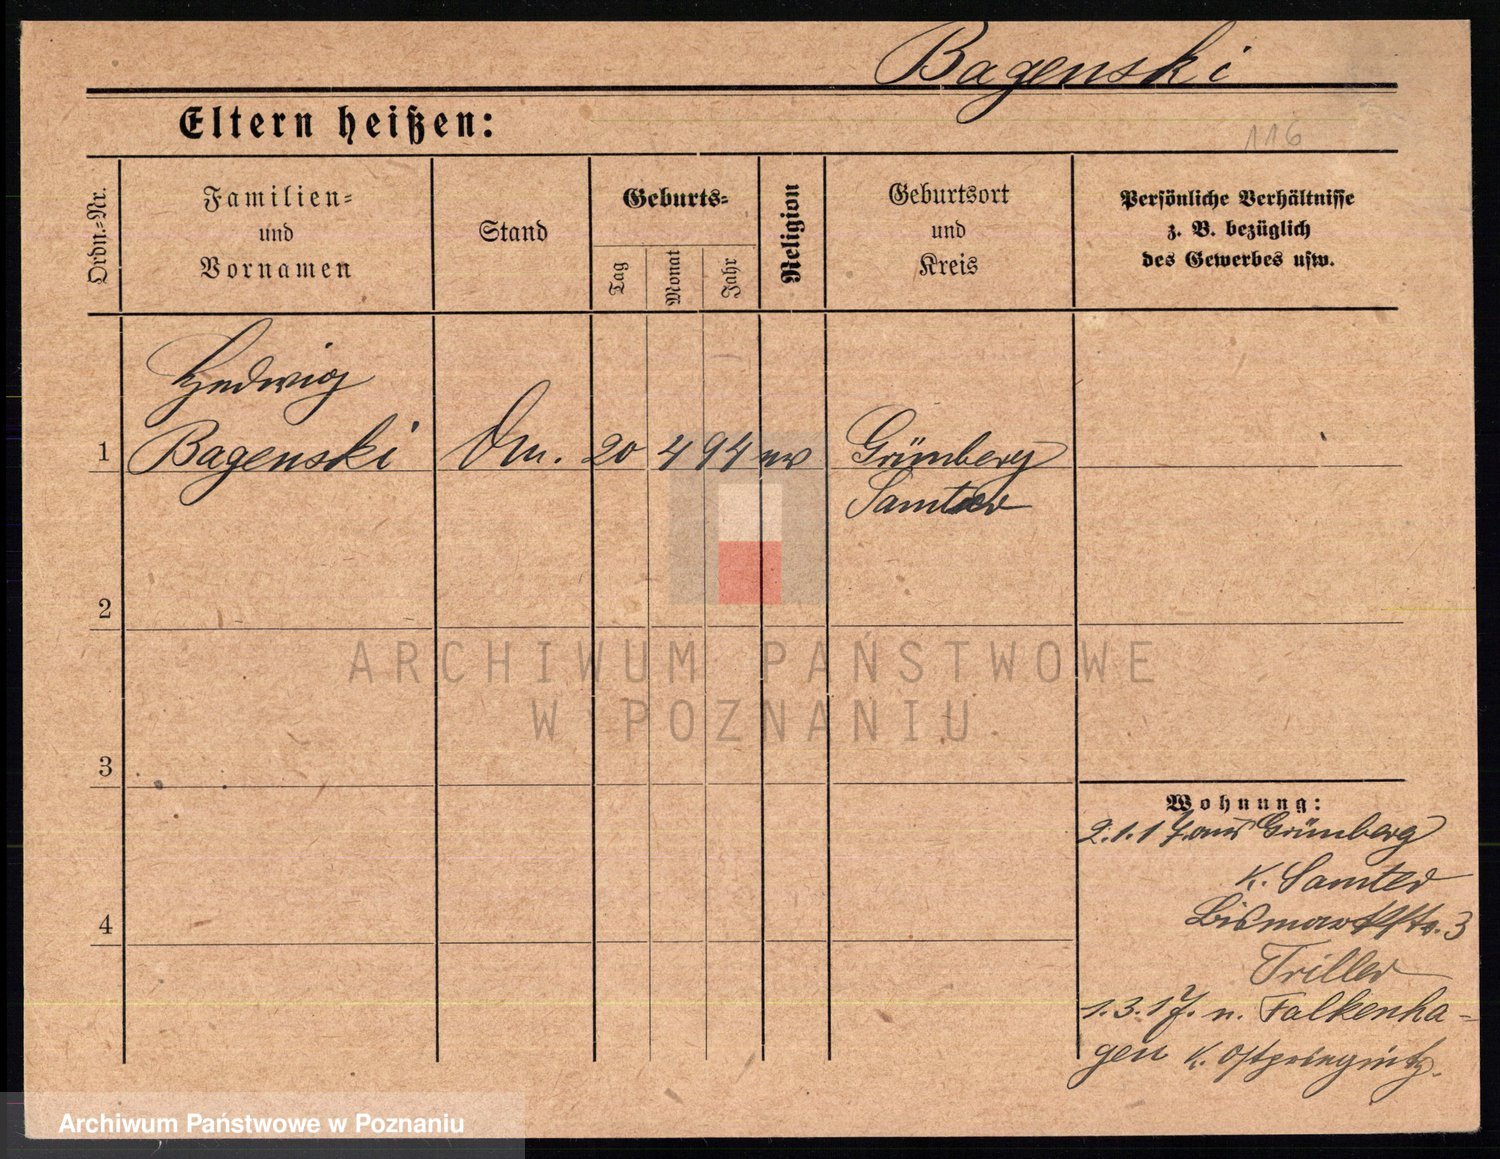 Bagenski
Eltern heißen:
116
Ordn.=Nr.
Familien=
und
Vornamen
Stand
Geburts=
Tag
Monat
Jahr
Religion
Geburtsort
und
Kreis
Persönliche Verhältnisse
z. B. bezüglich
des Gewerbes usw.
Hedwig
1 Bagenski 20 4 94 Grünberg
Samter
2
3
4
Wohnung:
2.1.17. aus Grünberg
K. Samter
Bismarckstr. 3
Triller
1.3.17. n. Falkenha-
gen K. Ostpriegnitz.
ARCHIWUM PAŃSTWOWE
W POZNANIU
Archiwum Państwowe w Poznaniu